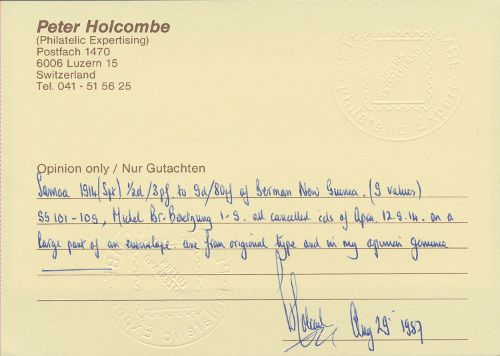 Peter Holcombe
(Philatelic Expertising)
Postfach 1470
6006 Luzern 15
Switzerland
Tel. 041 - 51 56 25
Opinion only / Nur Gutachten
Samoa 1914 (Spt) ½d/3pf to 9d/80pf of German New Guinea. (9 values)
SG 101-109, Michel Br. Besetzung 1-9. all cancelled cds of Apia. 12.9.14. on a
large part of an envelope are from original type and in my opinion genuine
Aug 29 1987